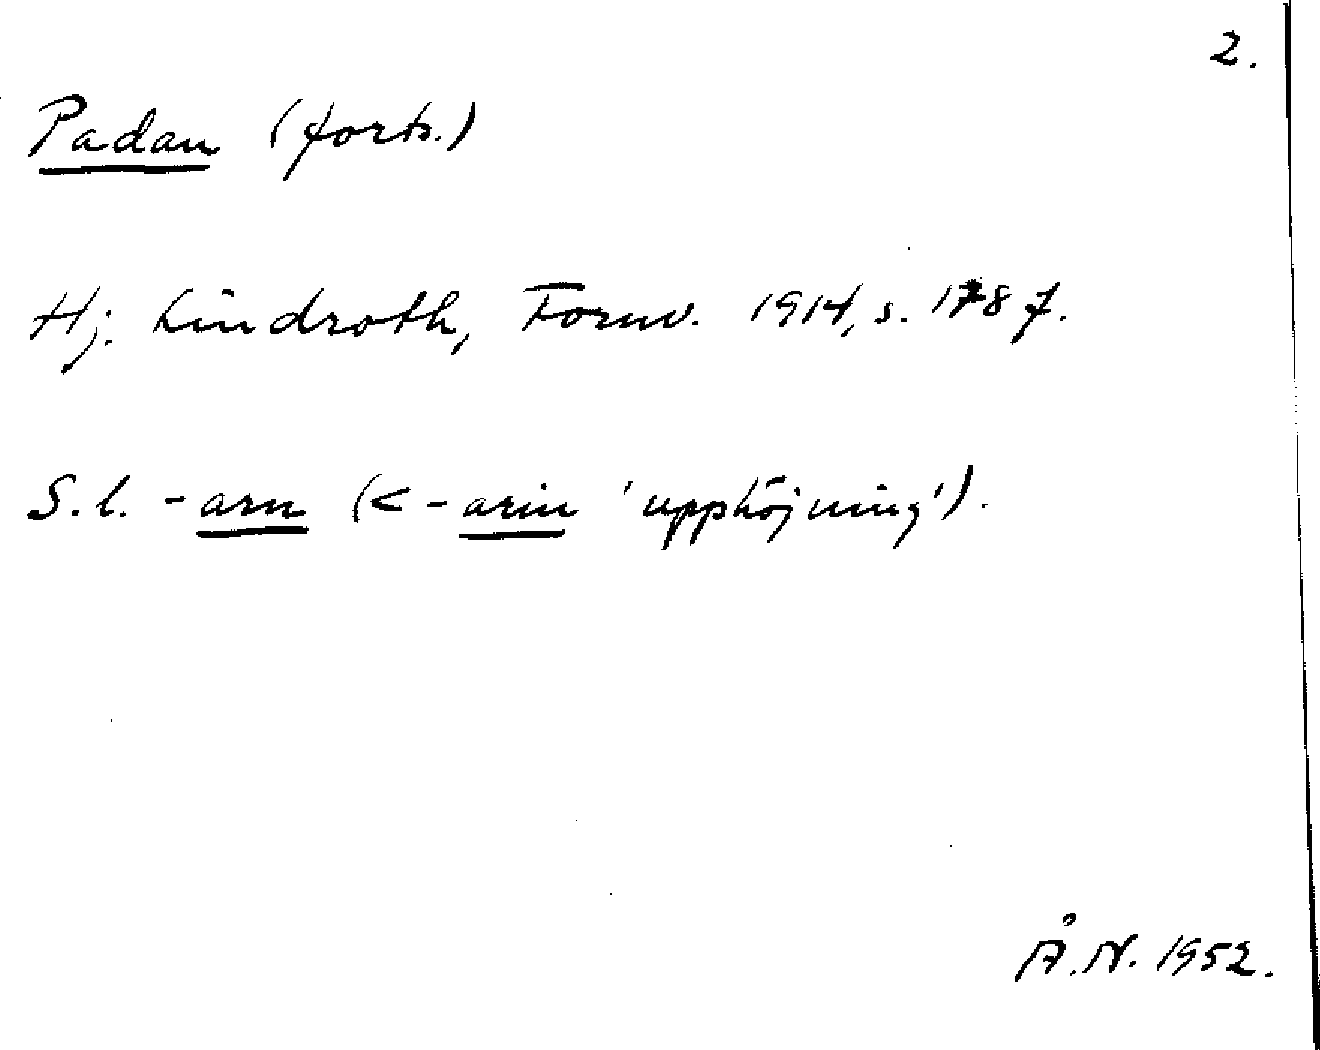 2.
Padan (forts.)
Hj. Lindroth, Fornv. 1914, s. 178 f.
S.l. -arn (< -arin 'upphöjning').
Å.N. 1952.